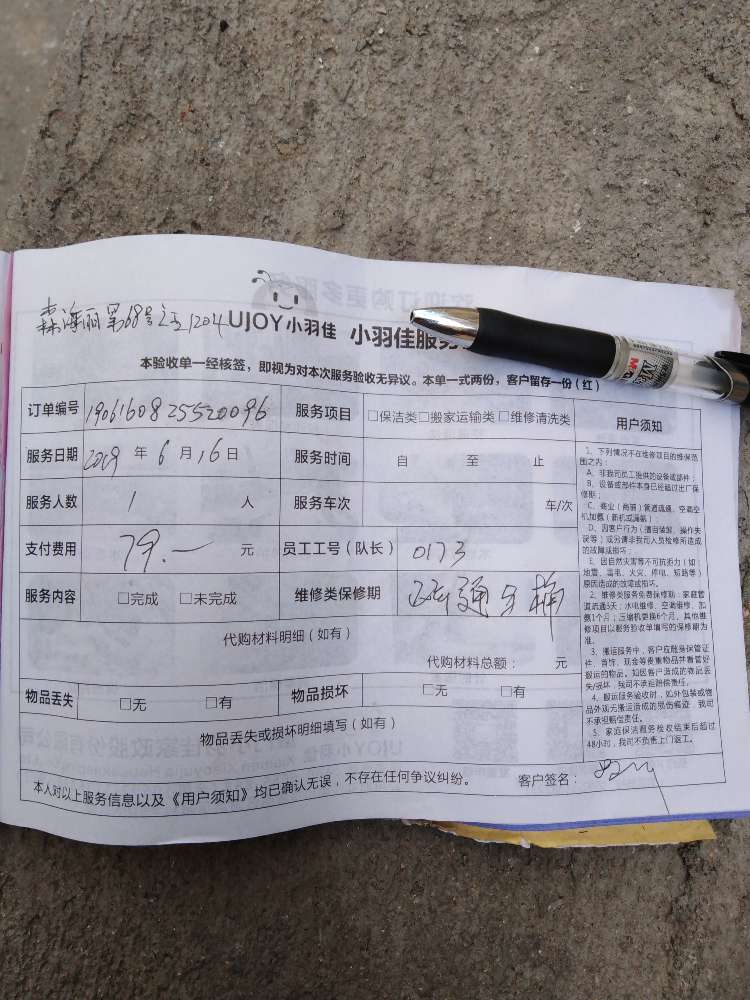 森海丽景68号之五1204
UJOY小羽佳 小羽佳服务
本验收单一经核签，即视为对本次服务验收无异议。本单一式两份，客户留存一份（红）
订单编号 19061608255520096 服务项目 □保洁类□搬家运输类□维修清洗类
服务日期 2019 年 6 月 16 日 服务时间 自 至 止
服务人数 1 人 服务车次 车/次
支付费用 79.— 元 员工工号（队长） 0173
服务内容 □完成 □未完成 维修类保修期 疏通马桶
代购材料明细（如有）
代购材料总额： 元
物品丢失 □无 □有 物品损坏 □无 □有
物品丢失或损坏明细填写（如有）
本人对以上服务信息以及《用户须知》均已确认无误，不存在任何争议纠纷。 客户签名：
用户须知
1、下列情况不在维修项目的维保范
围之内：
A、非我司员工提供的设备或部件；
B、设备或部件本身已经超过出厂保
修期；
C、商业（商厨）管道疏通、空调空
机加氨（新机或漏氨）；
D、因客户行为（擅自装卸、操作失
误等）或另请非我司人员检修所造成
的故障或损坏；
E、因自然灾害等不可抗拒力（如：
地震、雷电、火灾、停电、短路等）
原因造成的故障或损坏。
2、维修类服务免费保修期：家庭管
道疏通3天；水电维修、空调维修、加
氨1个月；压缩机更换6个月。其他维
修项目以服务验收单填写的保修期为
准。
3、搬运服务中，客户应随身保管证
件、首饰、现金等贵重物品并看管好
搬运的物品。如因客户造成的物品丢
失/损坏，我司不承担赔偿责任。
4、搬运服务验收时，如外包装或物
品外观无搬运造成的损伤痕迹，我司
不承担赔偿责任。
5、家庭保洁服务验收结束后超过
48小时，我司不负责上门返工。